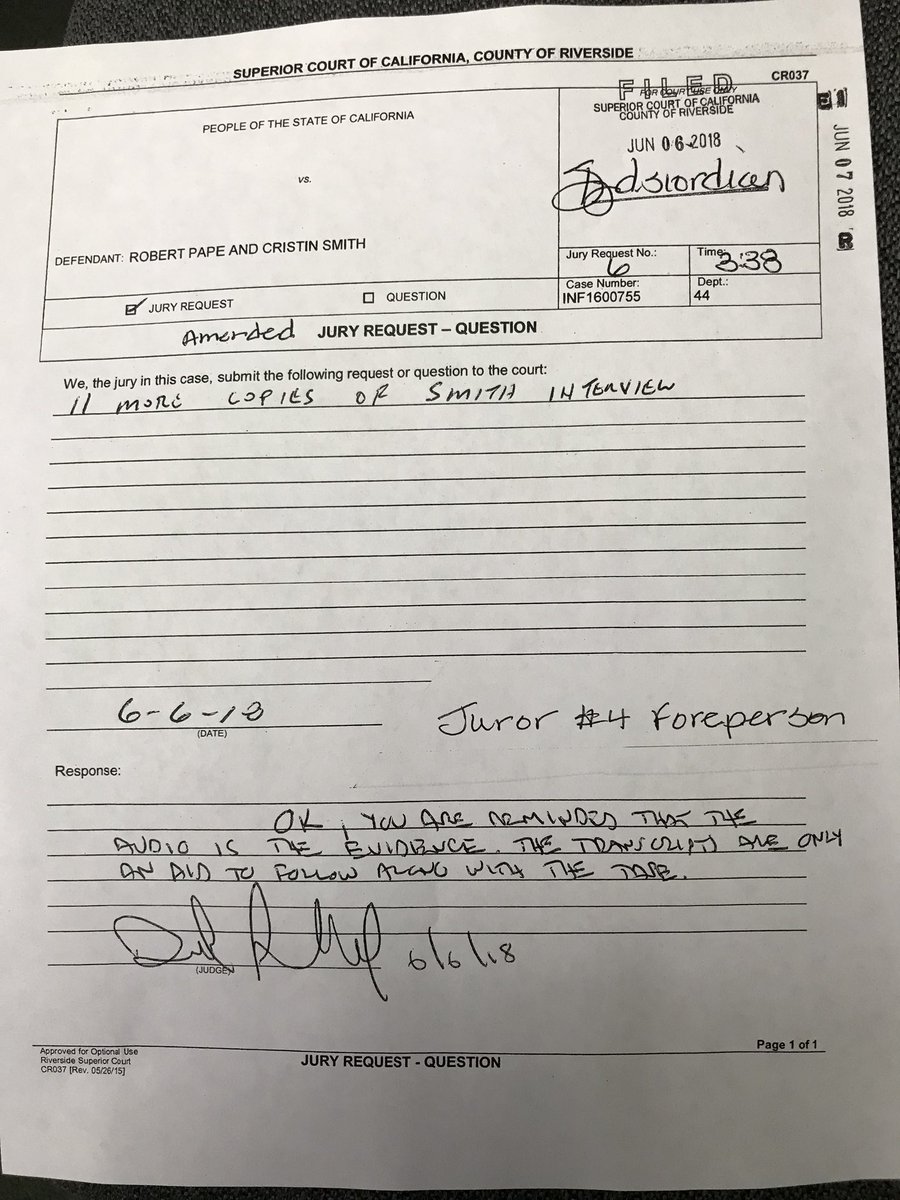 SUPERIOR COURT OF CALIFORNIA, COUNTY OF RIVERSIDE
CR037
PEOPLE OF THE STATE OF CALIFORNIA
vs.
DEFENDANT: ROBERT PAPE AND CRISTIN SMITH
FOR COURT USE ONLY
FILED
SUPERIOR COURT OF CALIFORNIA
COUNTY OF RIVERSIDE
JUN 06 2018
JUN 07 2018
Jury Request No.:
6
Time:
3:38
Case Number:
INF1600755
Dept.:
44
JURY REQUEST
QUESTION
Amended JURY REQUEST – QUESTION
We, the jury in this case, submit the following request or question to the court:
11 MORE COPIES OF SMITH INTERVIEW
6-6-18
(DATE)
Juror #4 Foreperson
Response:
OK, YOU ARE REMINDED THAT THE
AUDIO IS THE EVIDENCE. THE TRANSCRIPTS ARE ONLY
AN AID TO FOLLOW ALONG WITH THE TAPE.
6/6/18
(JUDGE)
Approved for Optional Use
Riverside Superior Court
CR037 [Rev. 05/26/15]
JURY REQUEST - QUESTION
Page 1 of 1